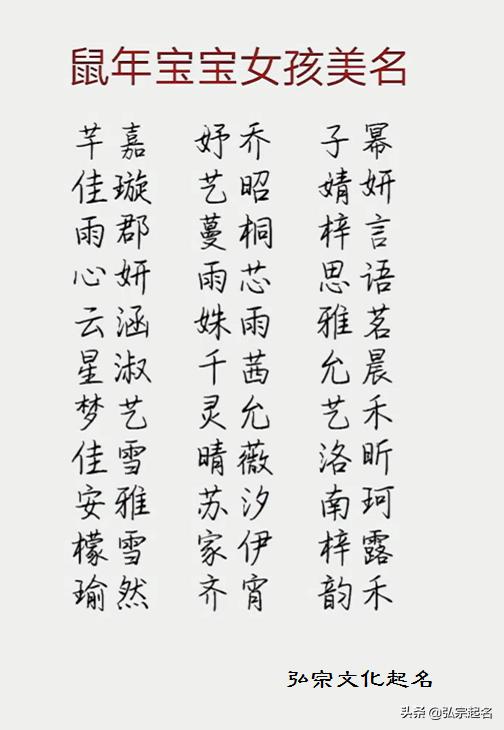 鼠年宝宝女孩美名
芊嘉 妤乔 子幂
佳璇 艺昭 婧妍
雨郡 蔓桐 梓言
心妍 雨芯 思语
云涵 姝雨 雅茗
星淑 千茜 允晨
梦艺 灵允 艺禾
佳雪 晴薇 洛昕
安雅 苏汐 南珂
檬雪 家伊 梓露
瑜然 齐宵 韵禾
弘宗文化起名
头条@弘宗起名